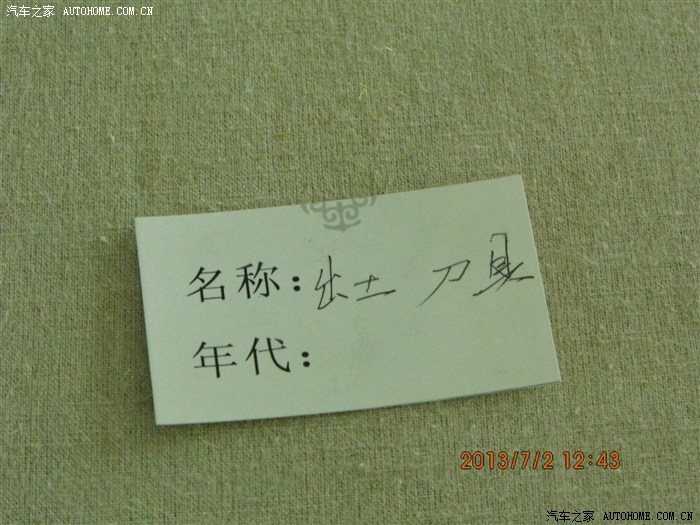 汽车之家 AUTOHOME.COM.CN
名称:出土 刀具
年代:
2013/7/2 12:43
汽车之家 AUTOHOME.COM.CN